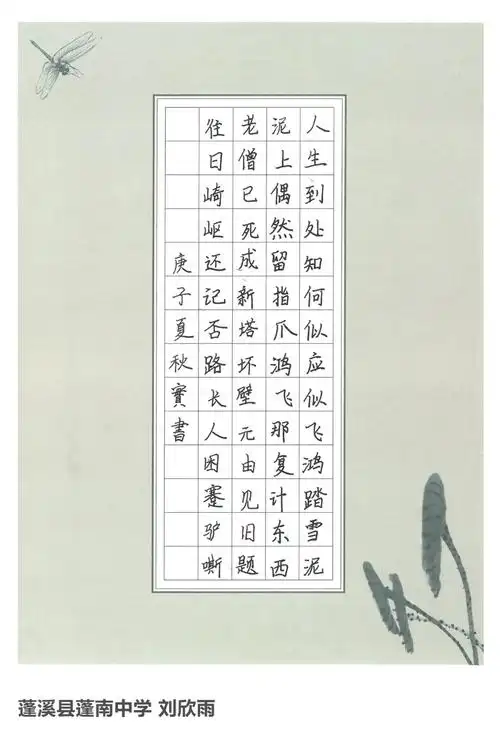 人生到处知何似应似飞鸿踏雪泥
泥上偶然留指爪鸿飞那复计东西
老僧已死成新塔坏壁元由见旧题
往日崎岖还记否路长人困蹇驴嘶
庚子夏秋實書
蓬溪县蓬南中学 刘欣雨